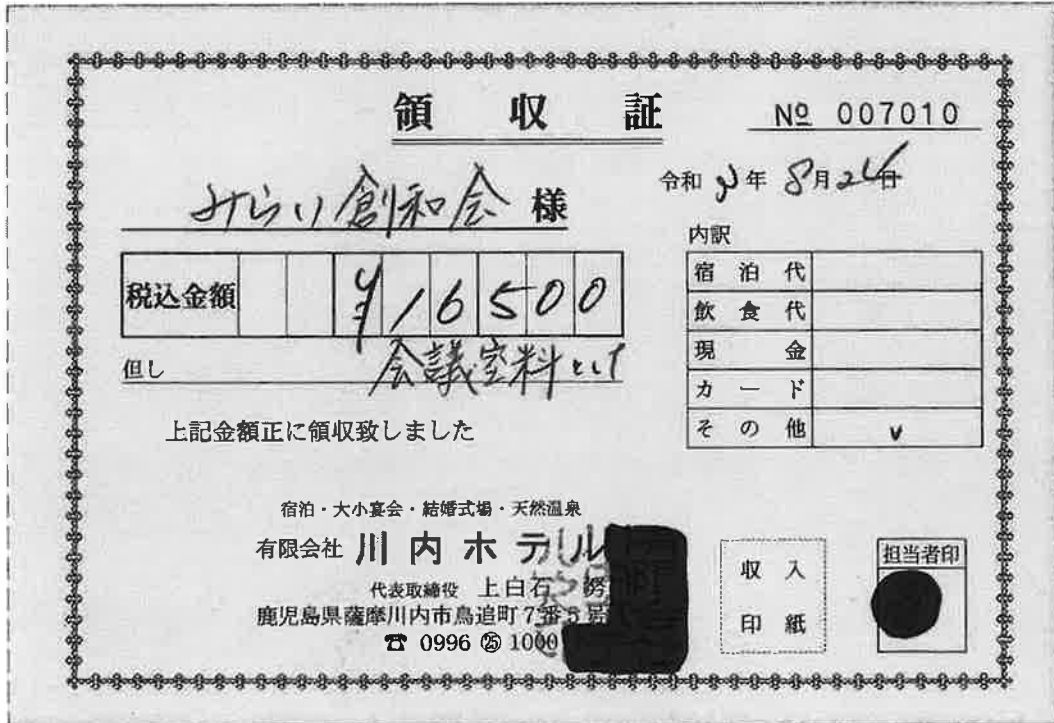 領収証
№ 007010
みらい創和会 様
令和 年 8月2 日
税込金額 ¥16500
但し 会議室料として
上記金額正に領収致しました
内訳
宿泊代
飲食代
現金
カード
その他 v
宿泊・大小宴会・結婚式場・天然温泉
有限会社 川内ホテル
代表取締役 上白石
鹿児島県薩摩川内市鳥追町7番5号
☎ 0996 ㉕ 1000
収入
印紙
担当者印